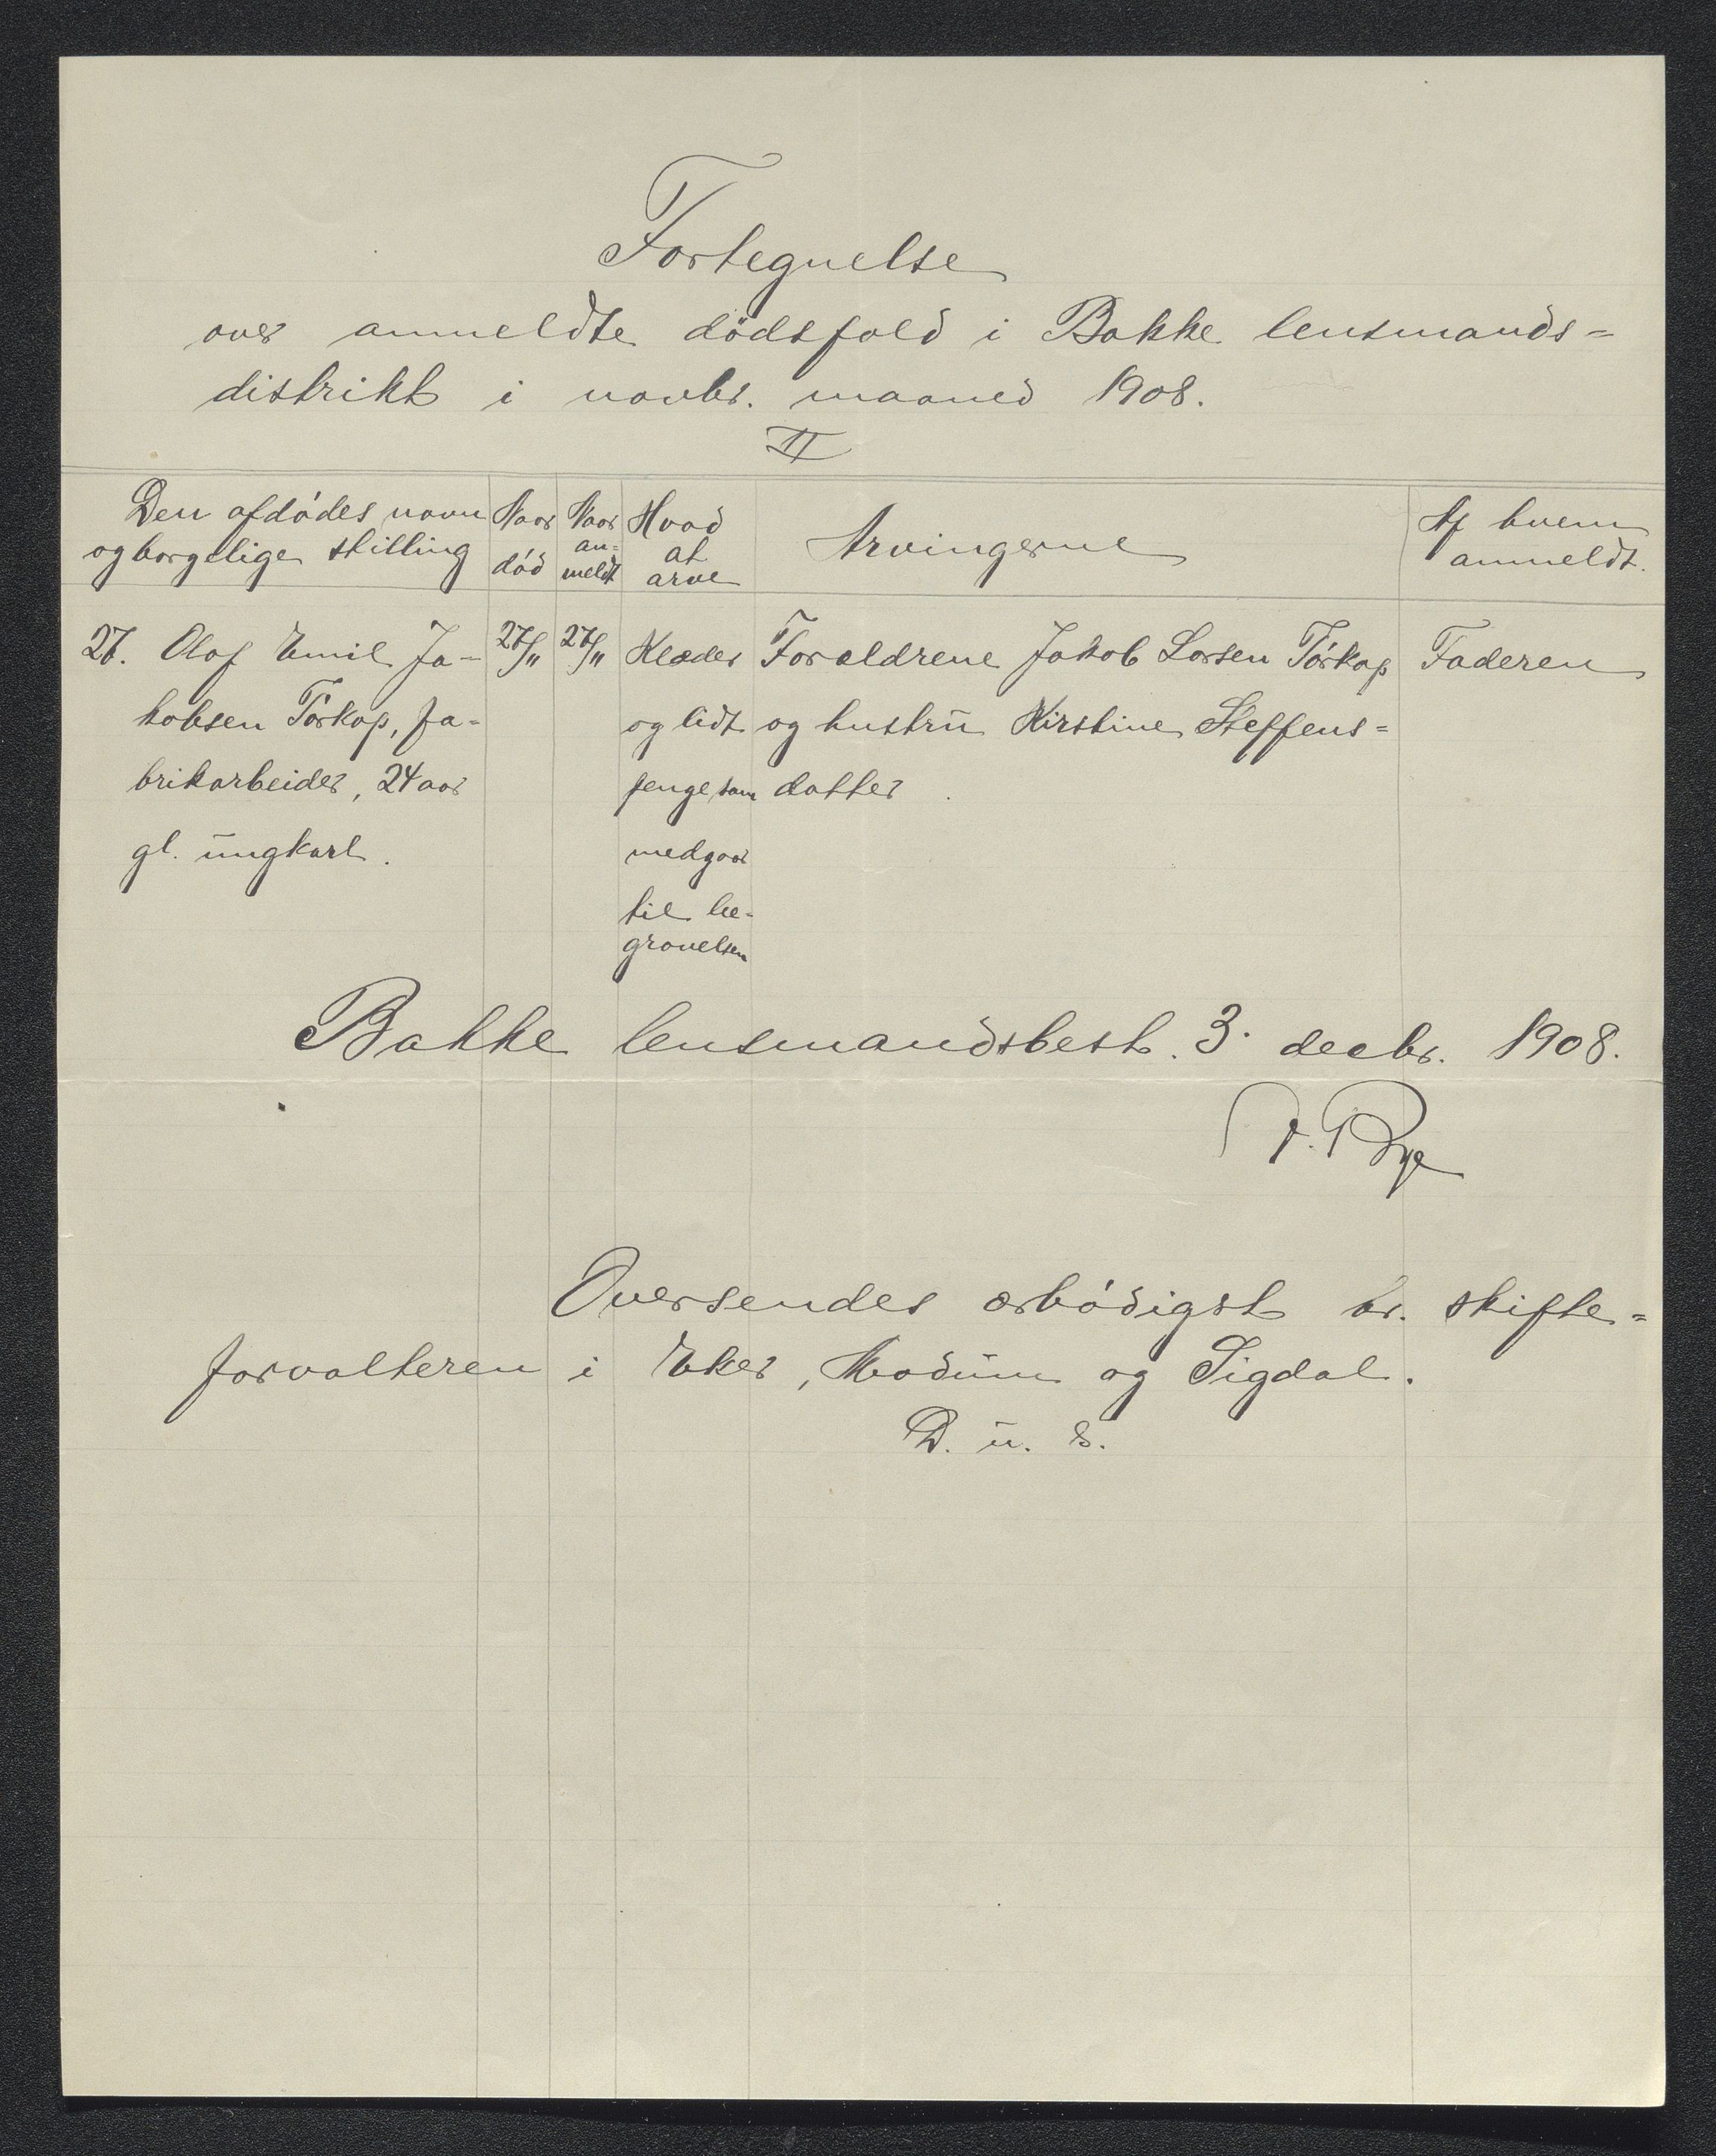 Fortegnelse
over anmeldte dödsfald i Bakke lensmands=
distrikt i novbr. maaned 1908.
II
Den afdödes navn
og borgelige stilling
Naar
död
Naar
an=
meldt
Hvad
at
arve
Arvingerne
Af hvem
anmeldt.
27. Olaf Emil Ja-
kobsen Törkop, fa-
brikarbeider, 24 aar
gl. ungkarl.
27/11
27/11
Klæder
og lidt
penge som
medgaar
til be-
gravelsen
Forældrene Jakob Larsen Törkop
og hustru Kirstine Steffens=
datter
Faderen
Bakke lensmandsbest. 3. decbr. 1908.
Rye
Oversendes ærbödigst hr. skifte=
forvalteren i Eker, Modum og Sigdal.
D. u. s.